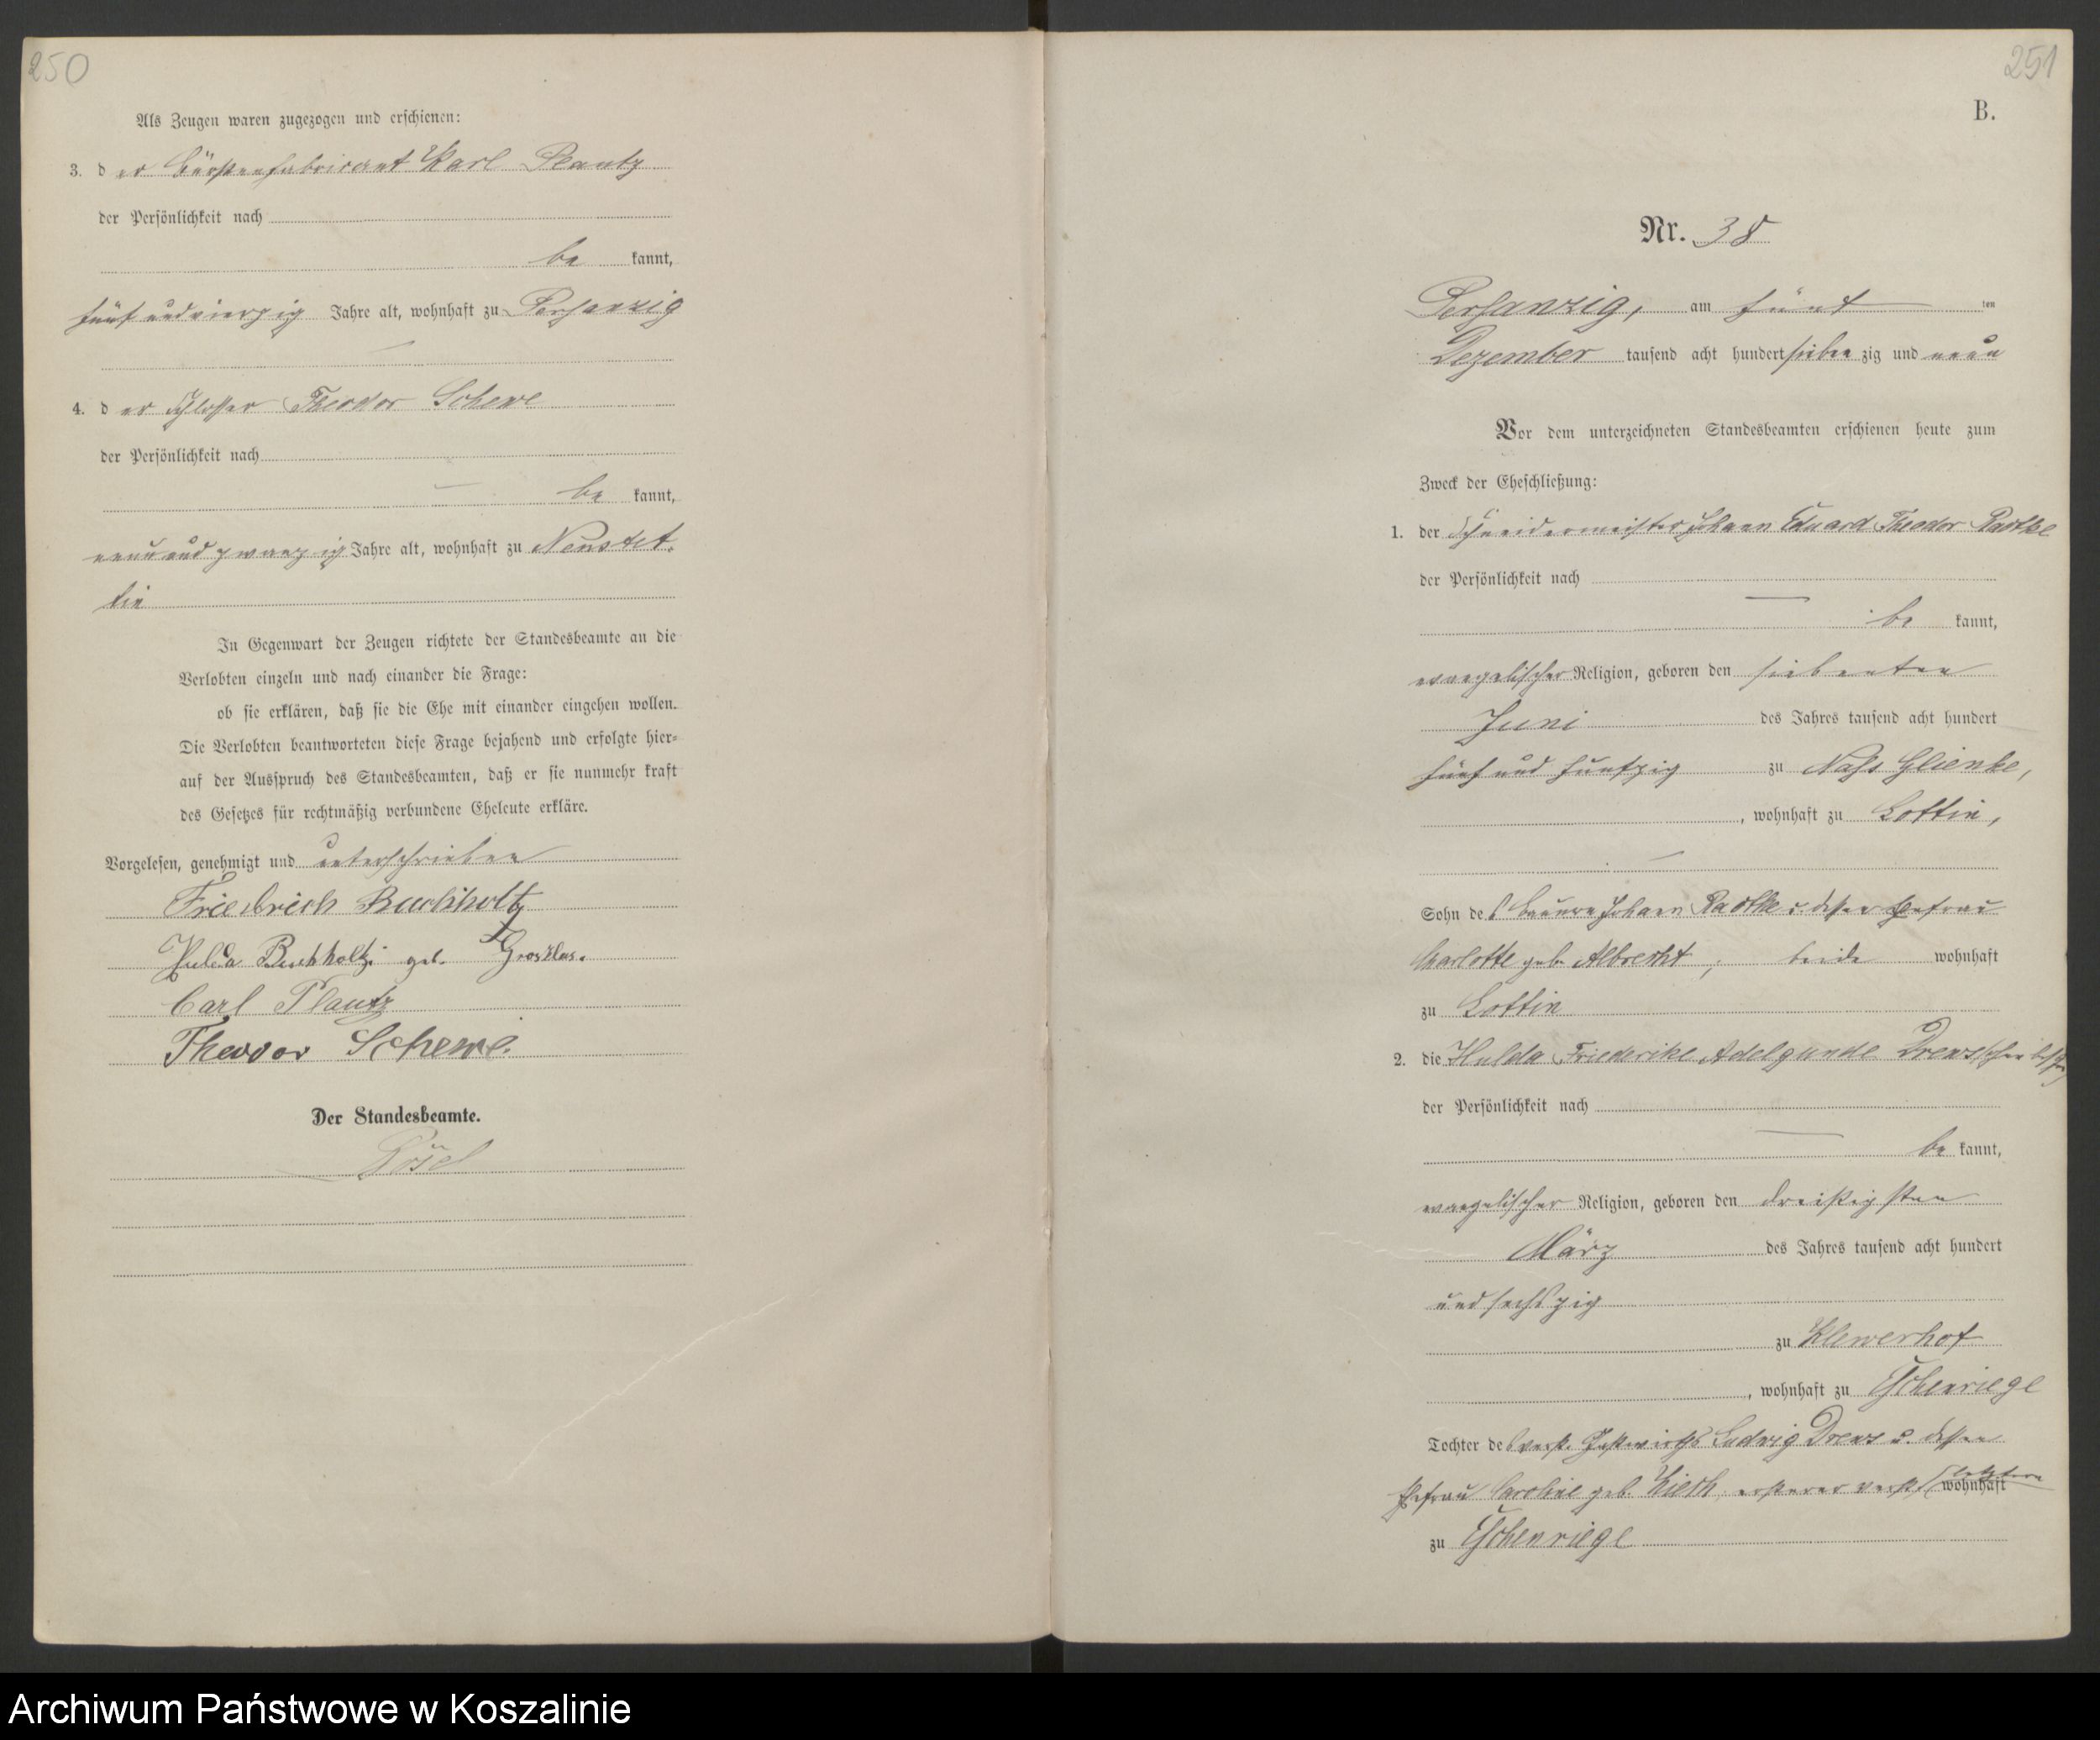 250
Als Zeugen waren zugezogen und erschienen:
3. der Bürstenfabricant Karl Plautz
der Persönlichkeit nach
be kannt,
fünf und vierzig Jahre alt, wohnhaft zu Persanzig
4. der Schlosser Theodor Schewe
der Persönlichkeit nach
be kannt,
neun und zwanzig Jahre alt, wohnhaft zu Neustet-
tin
In Gegenwart der Zeugen richtete der Standesbeamte an die
Verlobten einzeln und nach einander die Frage:
ob sie erklären, daß sie die Ehe mit einander eingehen wollen.
Die Verlobten beantworteten diese Frage bejahend und erfolgte hier-
auf der Ausspruch des Standesbeamten, daß er sie nunmehr kraft
des Gesetzes für rechtmäßig verbundene Eheleute erkläre.
Vorgelesen, genehmigt und unterschrieben
Friedrich Buchholtz
Hulda Buchholtz geb. Grosklas.
Carl Plautz
Theodor Schewe.
Der Standesbeamte.
251
B.
Nr. 38
Persanzig, am fünf ten
Dezember tausend acht hundert sieben zig und neun
Vor dem unterzeichneten Standesbeamten erschienen heute zum
Zweck der Eheschließung:
1. der Schneidermeister Johann Eduard Theodor Radtke
der Persönlichkeit nach
be kannt,
evangelischer Religion, geboren den siebenten
Juni des Jahres tausend acht hundert
fünf und funfzig zu Nass Glienke,
, wohnhaft zu Lottin,
Sohn des Bauern Johann Radtke u. dessen Ehefrau
Charlotte geb. Albrecht, beide wohnhaft
zu Lottin
2. die Hulda Friederike Adelgunde Drews
der Persönlichkeit nach
be kannt,
evangelischer Religion, geboren den dreißigsten
März des Jahres tausend acht hundert
und sechszig
zu Klewerhof
, wohnhaft zu Eschenriege
Tochter des verst. Gastwirths Ludwig Drews u. dessen
Ehefrau Caroline geb. Kieth, ersterer verst, letztere wohnhaft
zu Eschenriege
Archiwum Państwowe w Koszalinie